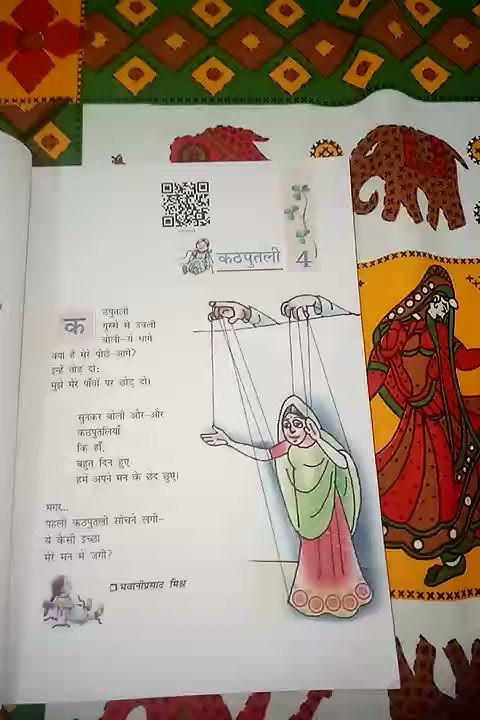 कठपुतली 4
कठपुतली
गुस्से से उबली
बोली-ये धागे
क्यों हैं मेरे पीछे-आगे?
इन्हें तोड़ दो;
मुझे मेरे पाँवों पर छोड़ दो।
सुनकर बोलीं और-और
कठपुतलियाँ
कि हाँ,
बहुत दिन हुए
हमें अपने मन के छंद छुए।
मगर...
पहली कठपुतली सोचने लगी-
ये कैसी इच्छा
मेरे मन में जगी?
भवानीप्रसाद मिश्र